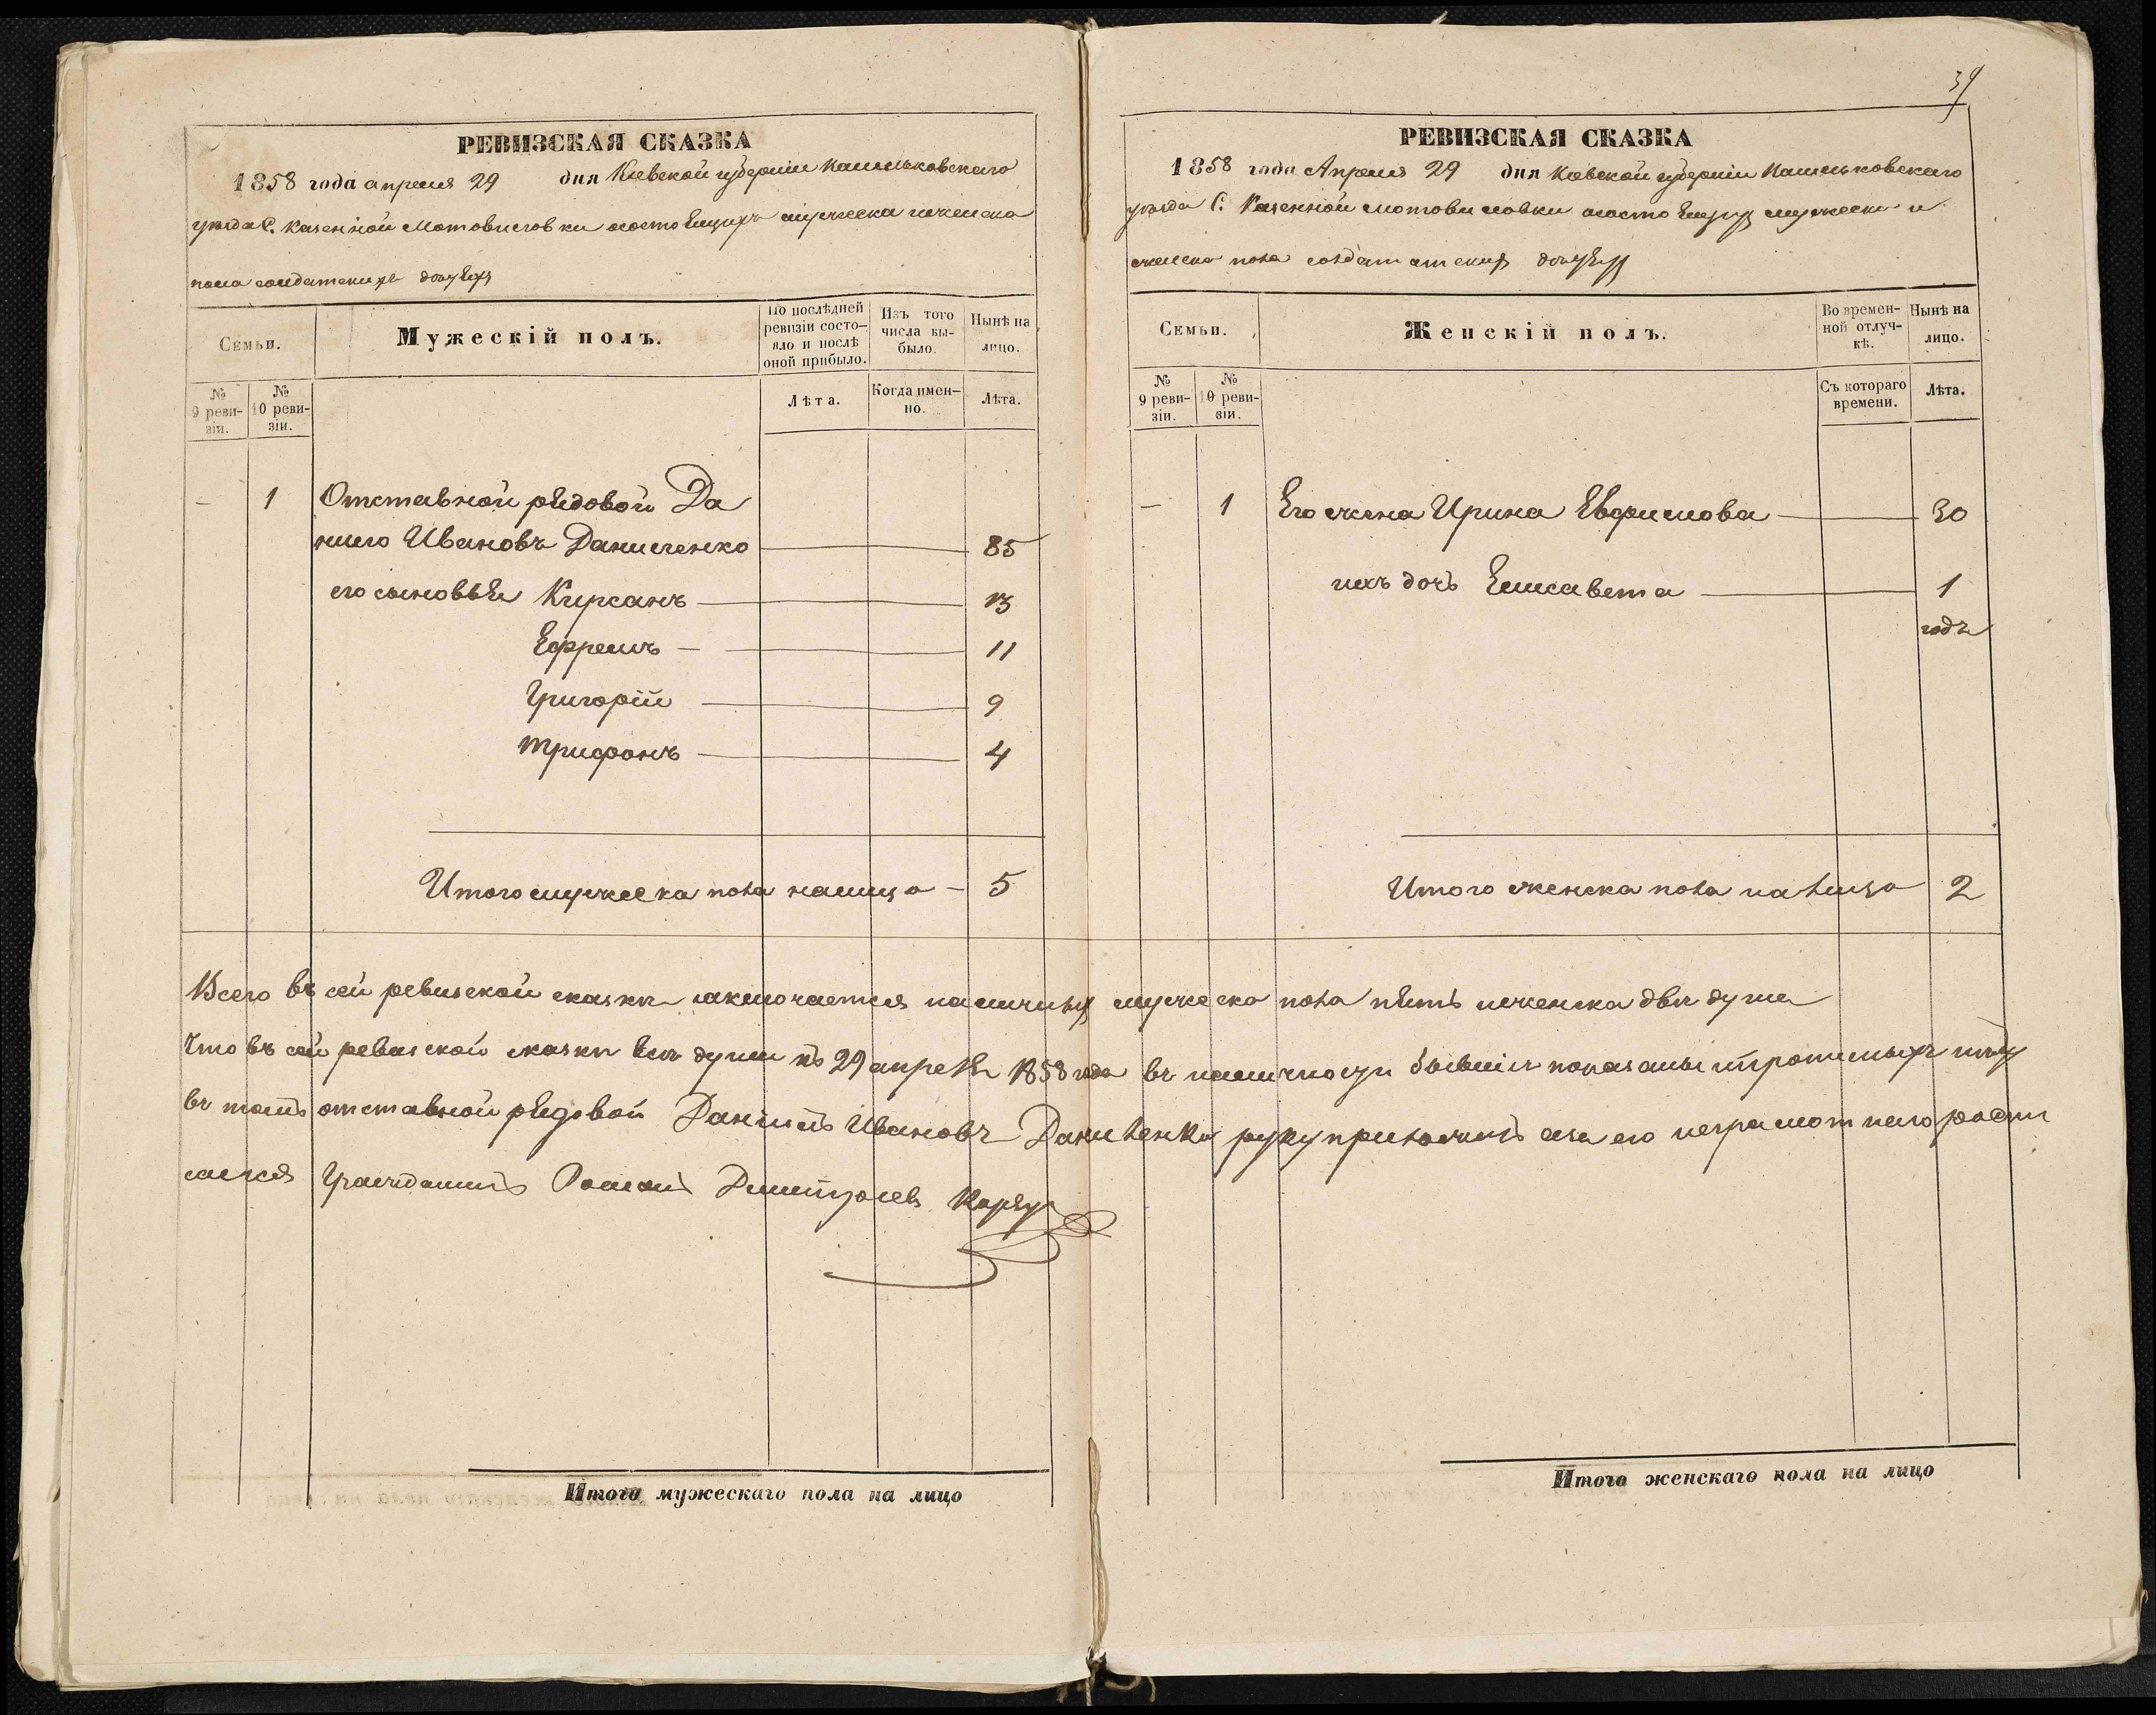 РЕВИЗСКАЯ СКАЗКА
1858 года апреля 29 дня Киевской губерніи
уезда С. Казенной Мотовиловки о состоящихъ мужеска и женска
пола солдатскихъ
Семьи.
Мужескій полъ.
По послѣдней ревизіи состояло и послѣ оной прибыло.
Изъ того числа выбыло.
Нынѣ на лицо.
№ 9 ревизіи.
№ 10 ревизіи.
Лѣта.
Когда именно.
Лѣта.
— 1 Отставной рядовой Да
нило Ивановъ Даниленко 85
его сыновья Кирсанъ 13
Ефремъ 11
Григорій 9
Трифонъ 4
Итого мужеска пола налицо 5
39
РЕВИЗСКАЯ СКАЗКА
1858 года Апреля 29 дня Киевской губерніи
уезда С. Казенной Мотовиловки о состоящихъ мужеска и
женска пола солдатскихъ
Семьи.
Женскій полъ.
Во временной отлучкѣ.
Нынѣ на лицо.
№ 9 ревизіи.
№ 10 ревизіи.
Съ котораго времени.
Лѣта.
— 1 Его жена Ирина Ефимова 30
ихъ дочь Елисавета 1
годъ
Итого женска пола на лицо 2
Всего въ сей ревизской сказки заключается наличныхъ мужеска пола пять и женска две души
Что въ сей ревизской сказки все души по 29 апреля 1858 года въ наличности бывшія показаны и нетъ
въ томъ отставной рядовой Данилъ Ивановъ Даниленко руку приложилъ а за его неграмотнаго роспи
сался Гражданинъ Романъ
Итого мужескаго пола на лицо
Итого женскаго пола на лицо